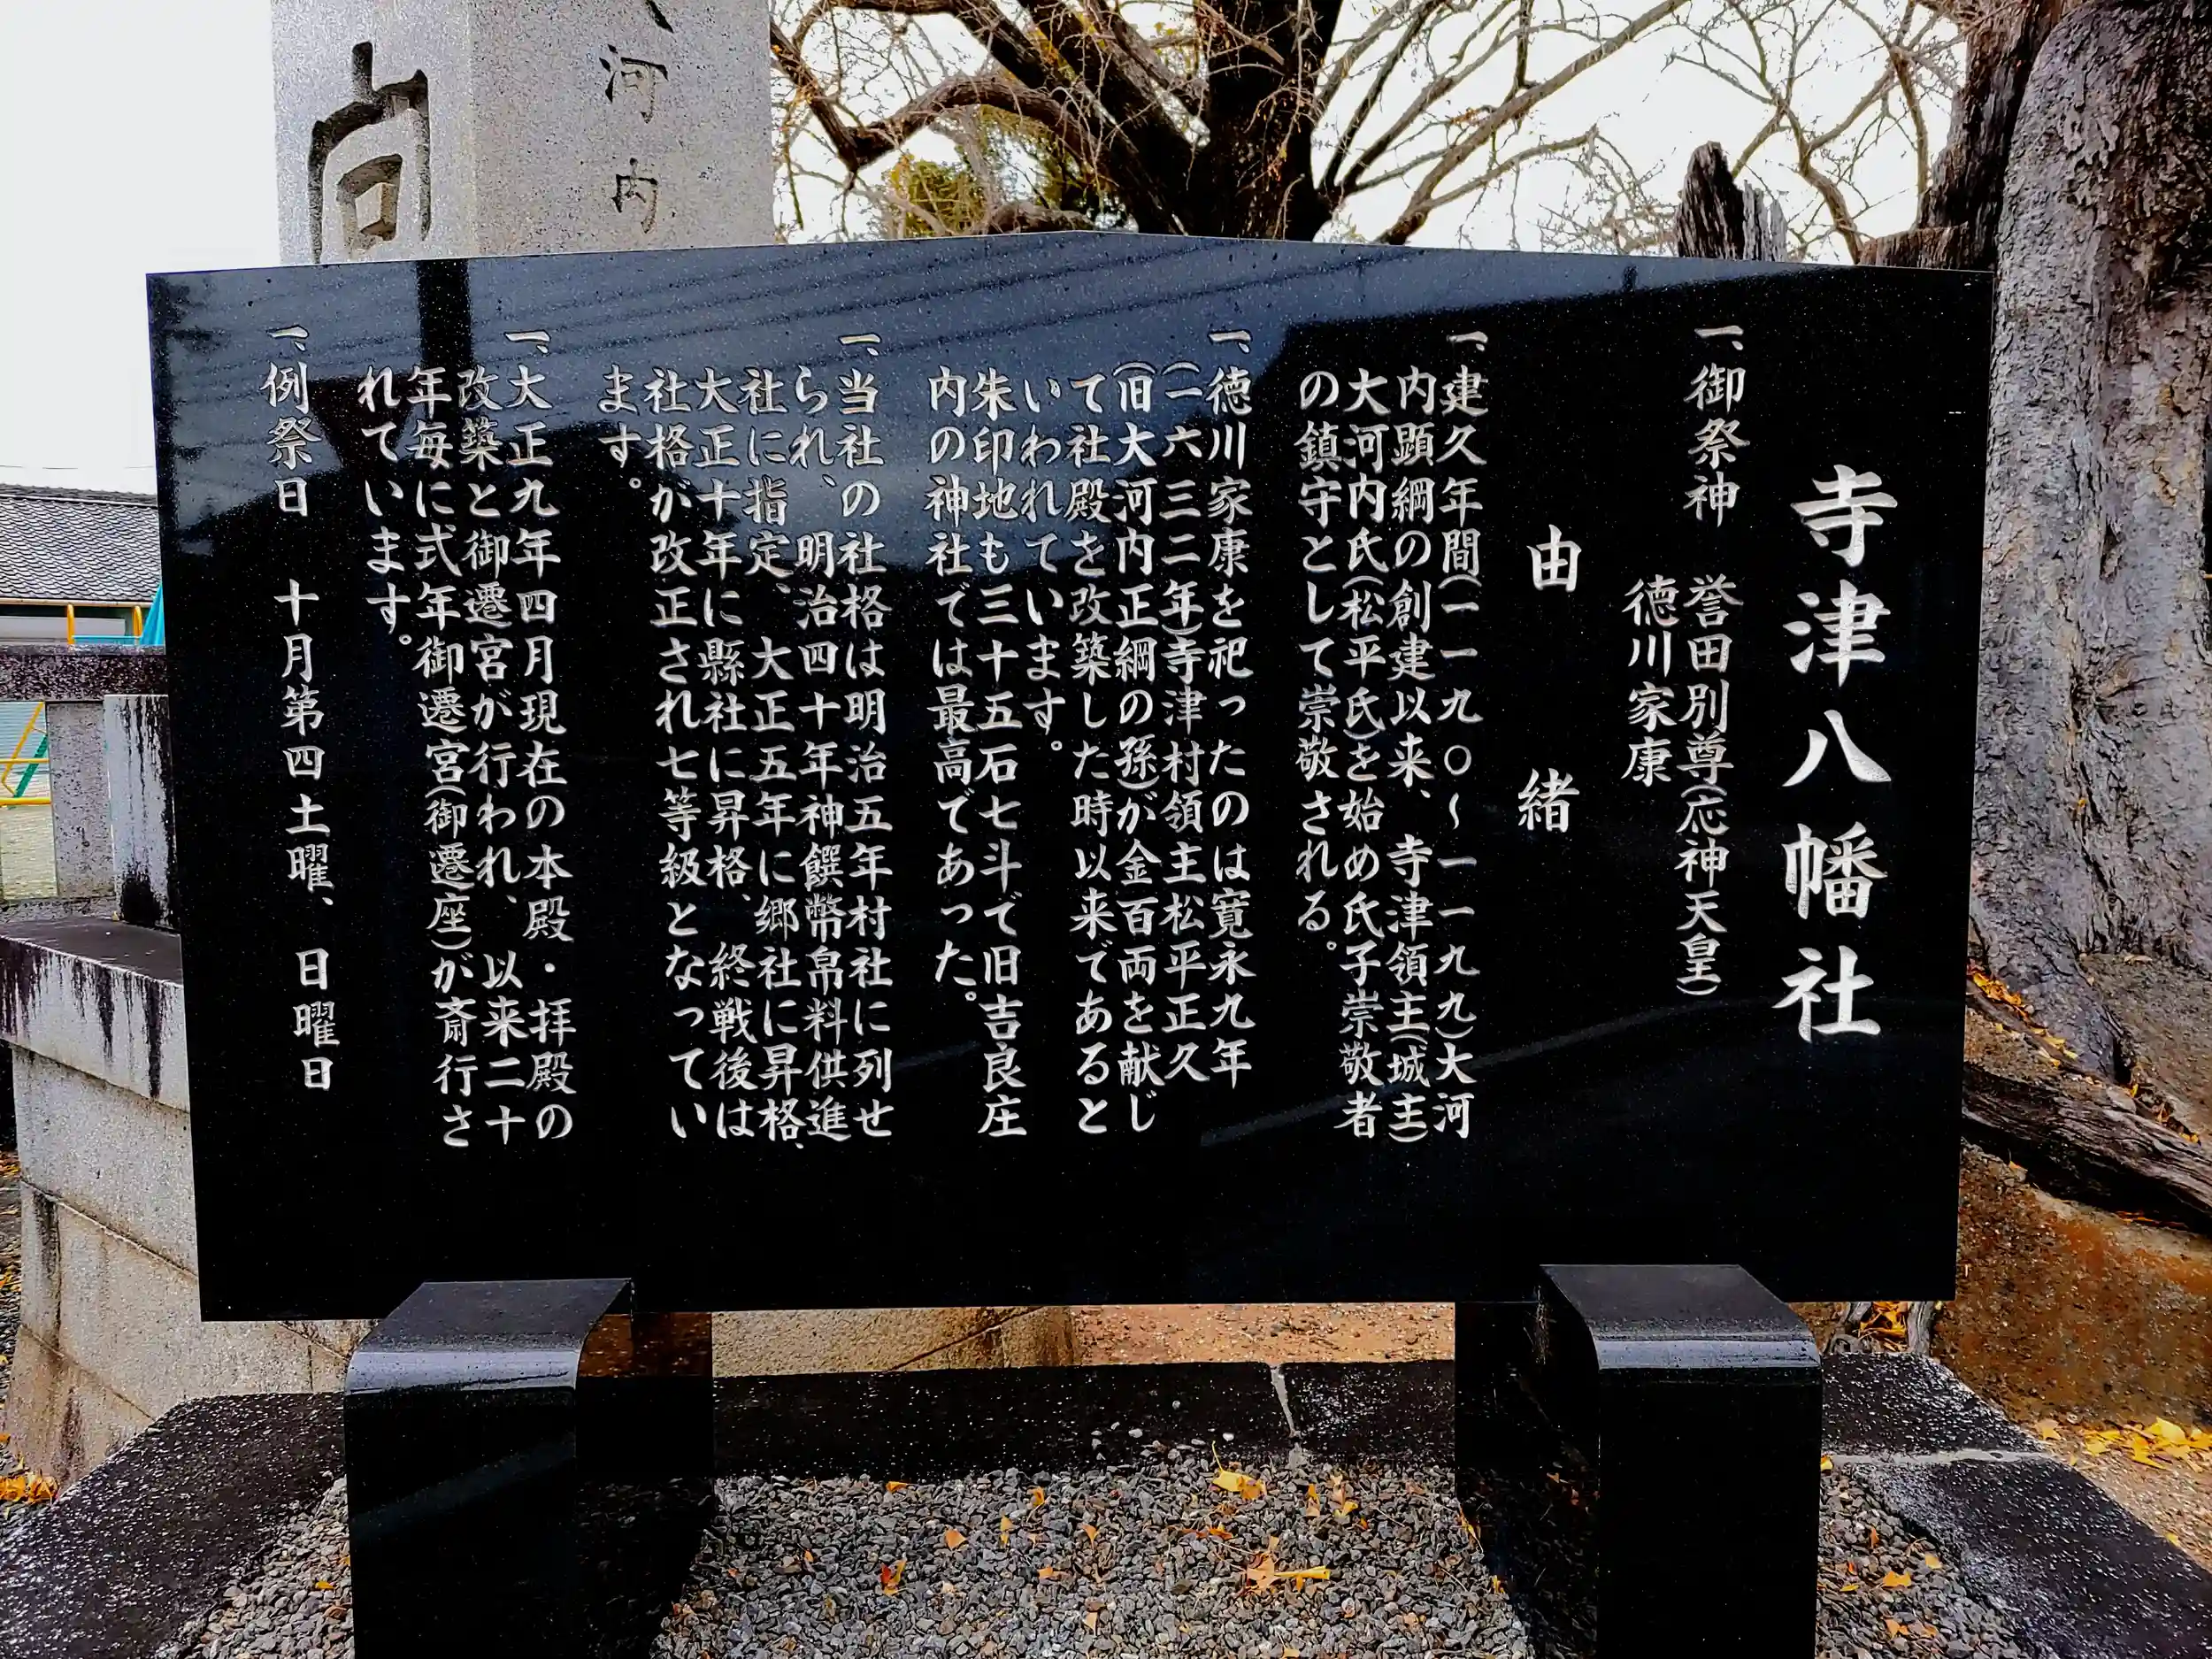 寺津八幡社
一、御祭神　誉田別尊(応神天皇)
徳川家康
由緒
一、建久年間(一一九〇〜一一九九)大河
内顕綱の創建以来、寺津領主(城主)
大河内氏(松平氏)を始め氏子崇敬者
の鎮守として崇敬される。
一、徳川家康を祀ったのは寛永九年
(一六三二年)寺津村領主松平正久
(旧大河内正綱の孫)が金百両を献じ
て社殿を改築した時以来であると
いわれています。
朱印地も三十五石七斗で旧吉良庄
内の神社では最高であった。
一、当社の社格は明治五年村社に列せ
られ、明治四十年神饌幣帛料供進
社に指定、大正五年に郷社に昇格、
大正十年に縣社に昇格、終戦後は
社格か改正され七等級となってい
ます。
一、大正九年四月現在の本殿・拝殿の
改築と御遷宮が行われ、以来二十
年毎に式年御遷宮(御遷座)が斎行さ
れています。
一、例祭日　十月第四土曜、日曜日
向
河内